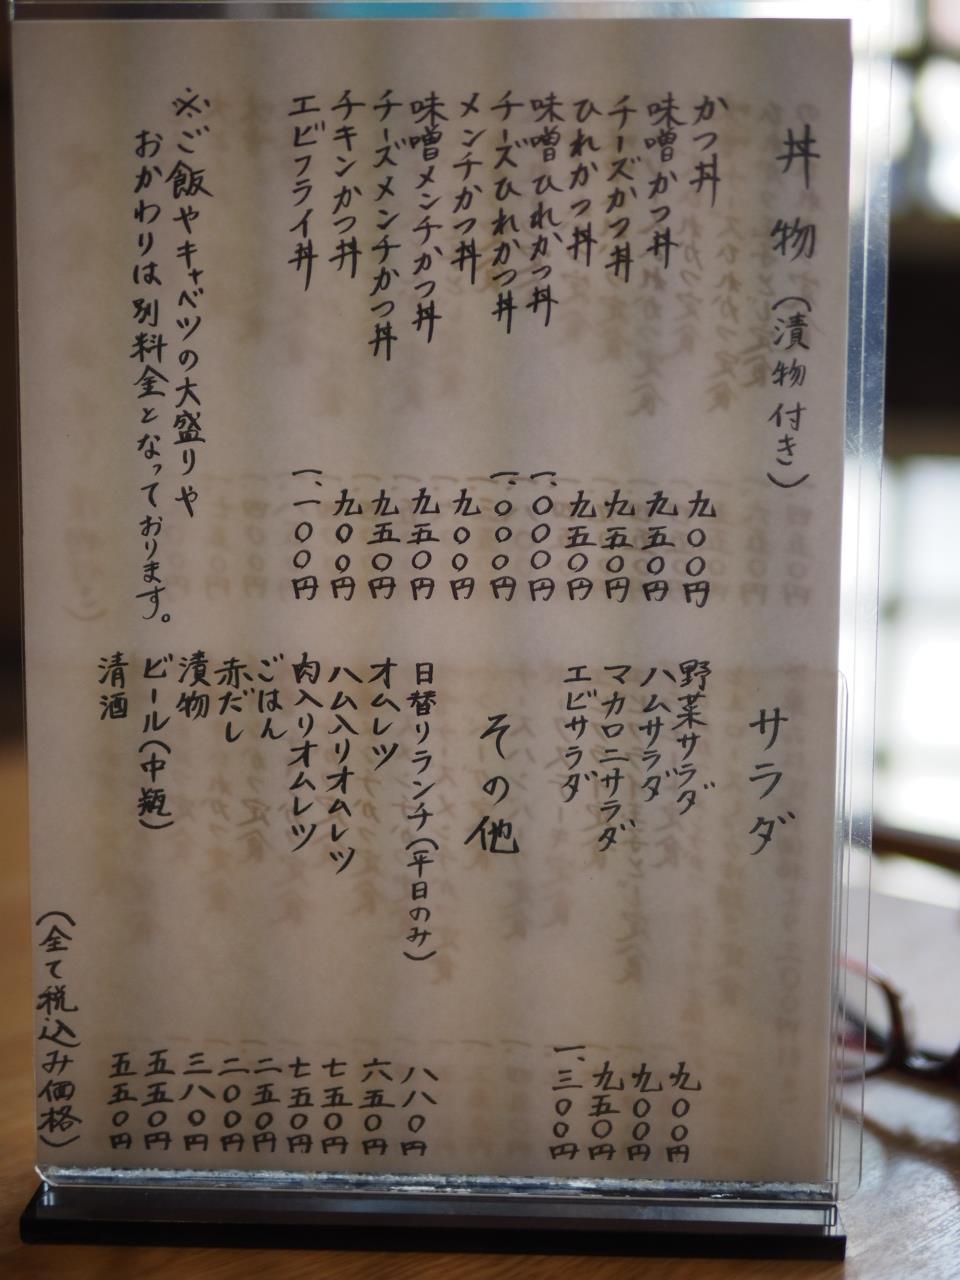 丼物(漬物付き)
かつ丼 九〇〇円
味噌かつ丼 九五〇円
チーズかつ丼 九五〇円
ひれかつ丼 九五〇円
味噌ひれかつ丼 一、〇〇〇円
チーズひれかつ丼 一、〇〇〇円
メンチかつ丼 九〇〇円
味噌メンチかつ丼 九五〇円
チーズメンチかつ丼 九五〇円
チキンかつ丼 九〇〇円
エビフライ丼 一、一〇〇円
※ご飯やキャベツの大盛りや
おかわりは別料金となっております。
サラダ
野菜サラダ 九〇〇円
ハムサラダ 九〇〇円
マカロニサラダ 九五〇円
エビサラダ 一、三〇〇円
その他
日替りランチ(平日のみ) 八八〇円
オムレツ 六五〇円
ハム入りオムレツ 七五〇円
肉入りオムレツ 七五〇円
ごはん 二五〇円
赤だし 二〇〇円
漬物 三八〇円
ビール(中瓶) 五五〇円
清酒 五五〇円
(全て税込み価格)